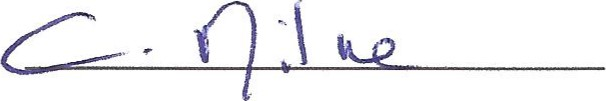 C. Milne